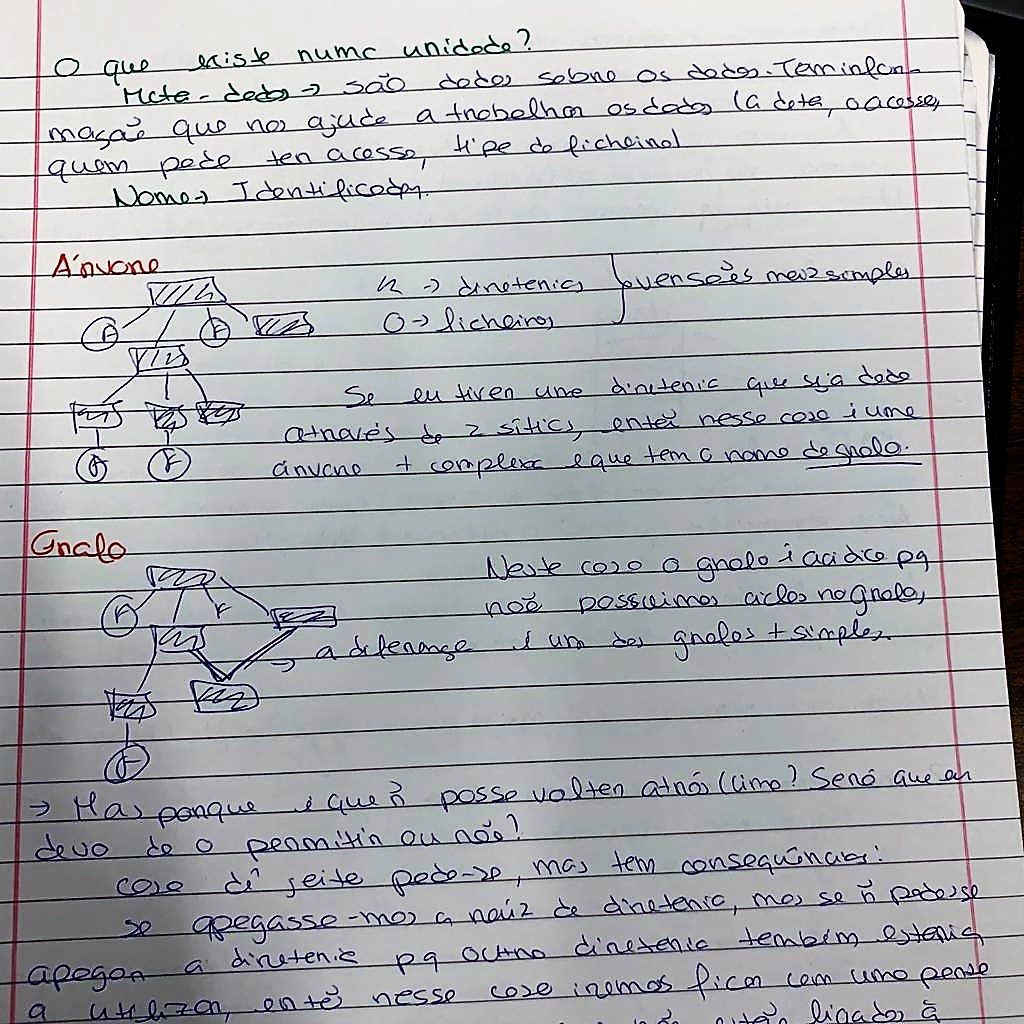 O que existe numa unidade?
Meta-dados → são dados sobre os dados. Tem infor-
mação que nos ajuda a trabalhar os dados (a data, o acesso,
quem pode ter acesso, tipo de ficheiro)
Nome → Identificador.
Árvore
→ diretoria } versões mais simples
O → ficheiros
F F
Se eu tiver uma diretoria que seja dada
através de 2 sítios, então nesse caso é uma
árvore + complexa e que tem o nome de grafo.
F F
Grafo
Neste caso o grafo é acíclico pq
F F não possuimos ciclos no grafo,
→ a diferença é um dos grafos + simples.
F
→ Mas porque é que ñ posso voltar atrás/cima? Será que eu
devo de o permitir ou não?
caso dê jeito pode-se, mas tem consequências:
se apagasse-mos a raíz de diretoria, mas se ñ podesse
apagar a diretoria pq outra diretoria também estaria
a utilizar, então nesse caso iremos ficar com uma
ligados à